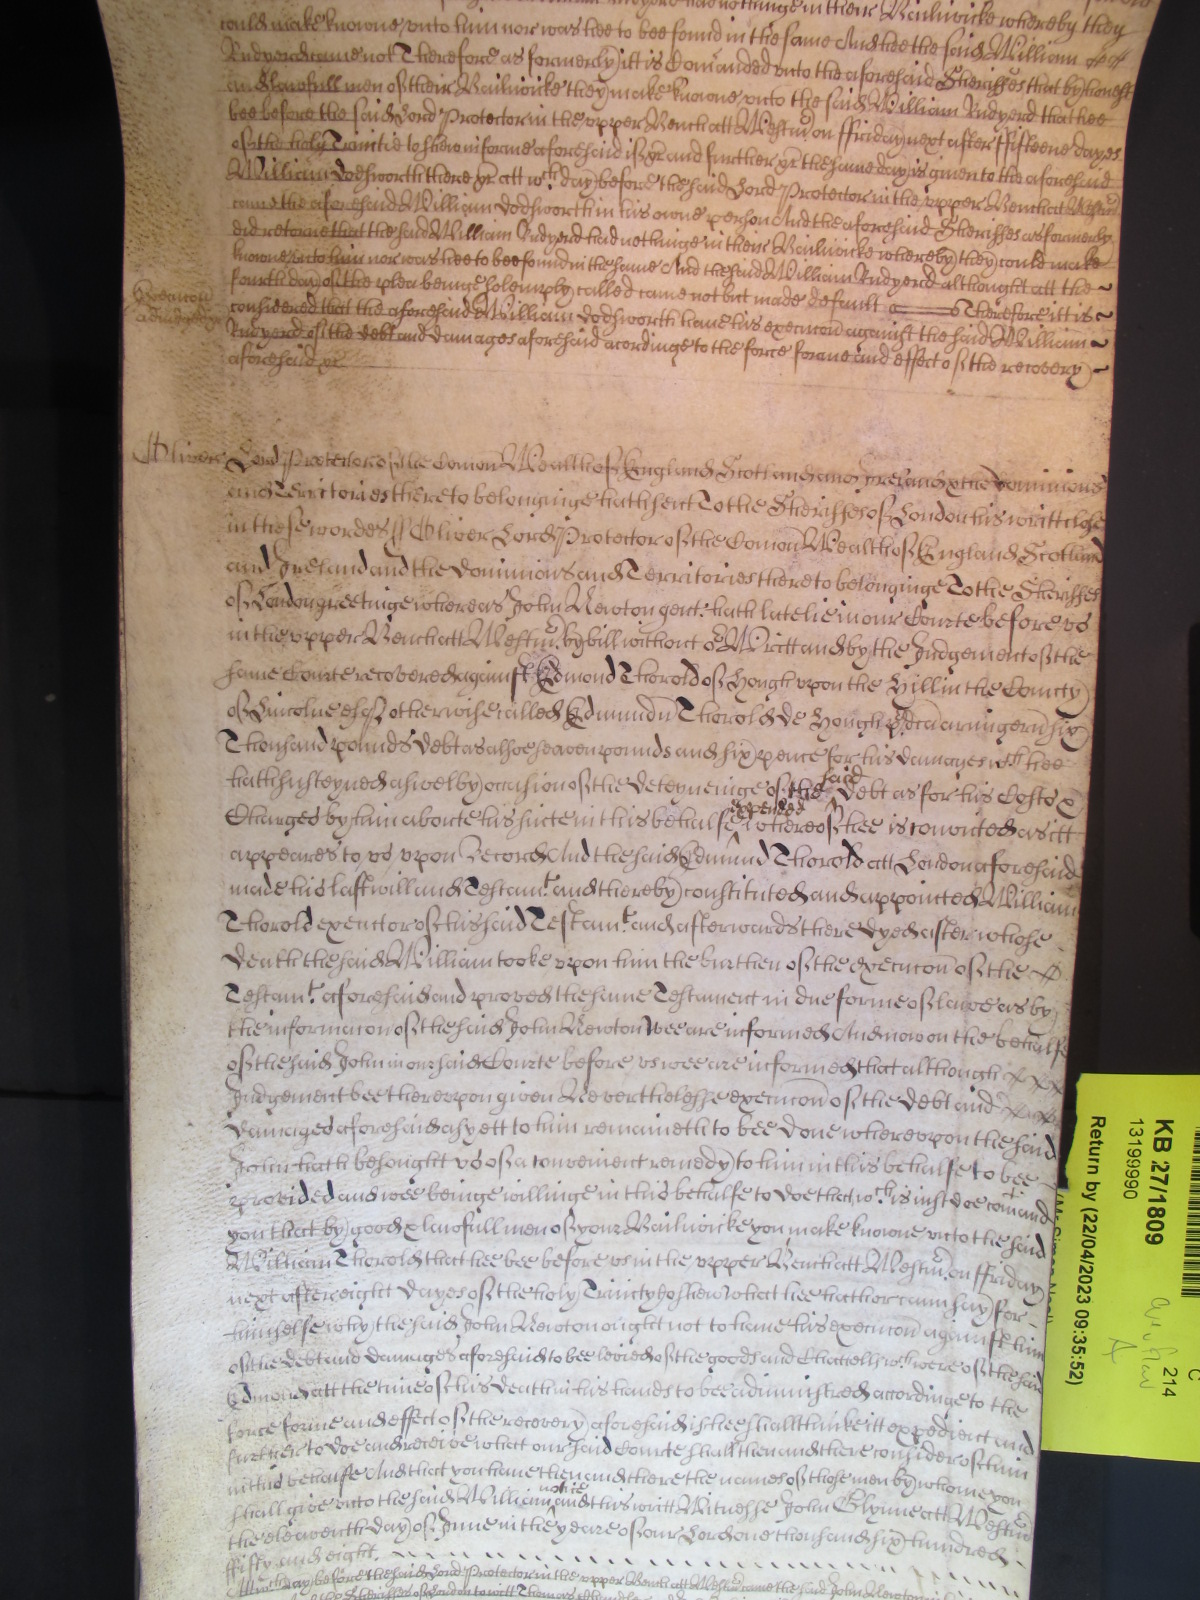 could make knowne unto him nor was hee to bee found in the same And hee the said William
Rudyerd came not Therefore as formerly itt is Comanded unto the aforesaid Sheriffes that by honest
and lawfull men of their Bailiwicke they make knowne unto the said William Rudyerd that hee
bee before the said Lord Protector in the upper Bench att Westmr on ffriday next after ffifteene dayes
of the holy Trinitie to shew in forme aforesaid if &c and further &c the same day is given to the aforesaid
William Dodsworth there &c att wch day before the said Lord Protector in the upper Bench att Westmr
came the aforesaid William Dodsworth in his owne person And the aforesaid Sheriffes as formerly
did retorne that the said William Rudyerd had nothinge in their Bailiwicke whereby they could make
knowne unto him nor was hee to bee found in the same And the said William Rudyerd althought att the
fourth day of the plea beinge solemply called came not but made default Therefore itt is
considered that the aforesaid William Dodsworth have his execucon against the said William
Rudyerd of the debt and damages aforesaid acordinge to the force forme and effect of the recovery
aforesaid &c
Execucon
adiudged
Oliver Lord Protector of the Comon Wealth of England Scotland and Ireland & the Dominions
and Territories thereto belonginge hath sent To the Sheriffes of London his writt close
in these wordes ss Oliver Lord Protector of the Comon Wealth of England Scotland
and Ireland and the Dominions and Territories thereto belonginge To the Sheriffes
of London greetinge whereas John Newton gent. hath latelie in our Courte before us
in the upper Bench att Westmr. by bill without or Writt and by the Judgement of the
same Courte recovered against Edmond Thorold of Hough upon the Hill in the County
of Lincolne esqr otherwise called Edmundn Thorold de Hough armigern six
Thousand pounds debt as alsoe seaven pounds and six pence for his damages wch hee
hath susteyned aswel by occasion of the deteyneinge of the said debt as for his Costs &
Charges by him aboute his suite in this behalfe expended whereof hee is convicted as itt
appeares to us upon Record And the said Edmund Thorold att London aforesaid
made his last will and Testamt. and thereby constituted and appointed William
Thorold executor of his said Testamt. and afterwards there dyed after whose
death the said William tooke upon him the burthen of the execucon of the
Testamt. aforesaid and proved the same Testament in due forme of lawe as by
the informacon of the said John Newton wee are informed And now on the behalfe
of the said John in our said Courte before us wee are informed that although
Judgement bee thereupon given Neverthelesse execucon of the debt and
damages aforesaid as yett to him remaineth to bee done whereupon the said
John hath besought us of a convenient remedy to him in this behalfe to bee
provided and wee beinge willinge in this behalfe to doe that wch is just doe comand
you that by good & lawfull men of your Bailiwicke you make knowne unto the said
William Thorold that hee bee before us in the upper Bench att Westmr. on ffriday
next after eight dayes of the holy Trinity to shew what hee hath or can say for
himselfe why the said John Newton ought not to have his execucon against him
of the debt and damages aforesaid to bee levied of the goods and Chattells wch were of the said
Edmond att the time of his death in his hands to bee administred accordinge to the
force forme and effect of the recovery aforesaid if hee shall thinke itt expedient and
further to doe and receive what our said Courte shall then and there consider of him
in this behalfe And that you have then and there the names of those men by whome you
shall give unto the said William notice and this writt Witnesse John Glynne att Westmr
the eleaventh day of June in the yeare of our Lord one thousand six hundred
ffifty and eight.
Att wch day before the said Lord Protector in the upper Bench att Westmr came the said John Newton
KB 27/1809
13199990
Return by (22/04/2023 09:35:52)
214
C